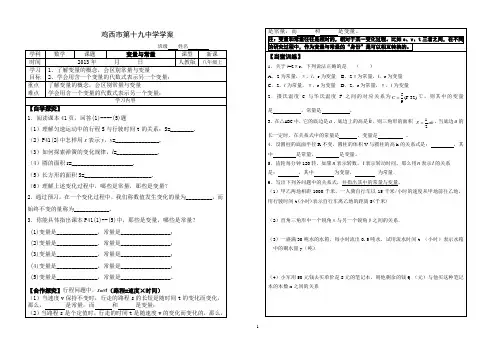 鸡西市第十九中学学案
班级 姓名
学科 数学 课题 变量与常量 课型 新课
时间 2013年 月 日 人教版 八年级上
学习目标 1、了解变量的概念，会区别常量与变量
2、学会用含一个变量的代数式表示另一个变量；
重点 了解变量的概念，会区别常量与变量
难点 学会用含一个变量的代数式表示另一个变量；
学习内容
【自学探究】
1. 阅读课本41页，回答(1)----(5)题
（1）理解匀速运动中的行程S与行驶时间t的关系，S=_______。
（2）P41(2)中怎样用x表示y，y=_____________。
（3）如何探索弹簧的变化规律，l=_____________。
（4）圆的面积r=_____________。
（5）长方形的面积S=_____________。
（6）理解上述变化过程中，哪些是常量，那些是变量？
2.通过预习，在一个变化过程中，我们称数值发生变化的量为________，而
始终不变的量称为___________。
3. 你能具体指出课本P41(1)--(5)中，那些是变量，哪些是常量？
(1)变量是____________，常量是______________；
(2)变量是____________，常量是______________；
(3)变量是____________，常量是______________；
(4)变量是____________，常量是______________；
(5)变量是____________，常量是______________；
【合作探究】行程问题中，s=vt（路程=速度×时间）
（1）当速度v保持不变时，行走的路程s的长短是随时间t的变化而变化，
那么， 是常量，而 和 是变量；
（2）当路程s是个定值时，行走的时间t是随速度v的变化而变化的，那么，
是常量，而 和 是变量；
注：变量和常量往往是相对的，相对于某一变化过程，比如s、v、t三者之间，在不同
的研究过程中，作为变量与常量的“身份”是可以相互转换的。
【当堂训练】
1、关于l=2πr，下列说法正确的是 （ ）
A、2为常量，π，l，r为变量 B、2π为常量，l，r为变量
C、2，l为常量，π，r为变量 D、2，r为常量，π，l为变量
2、摄氏温度C与华氏温度F之间的对应关系为C=5/9(F-32)℃，则其中的变量
是 ，常量是 。
3、在△ABC中，它的底边是a，底边上的高是h，则三角形的面积S=1/2ah，当底边a的
长一定时，在关系式中的常量是 ，变量是 。
4、设圆柱的底面半径R不变，圆柱的体积V与圆柱的高h的关系式是： ，其
中 是常量， 是常量。
5、油箱每分钟120转，如果n表示转数，t表示转动时间，那么用n表示t的关系
是： ，其中 为变量， 为常量
6、写出下列各问题中的关系式，并指出其中的常量与变量。
（1）甲乙两地相距1000千米，一人骑自行车以15千米/小时的速度从甲地前往乙地，
用行驶时间t(小时)表示自行车离乙地的距离S(千米)
（2）直角三角形中一个锐角α与另一个锐角β之间的关系。
（3）一盛满30吨水的水箱，每小时流出0.5吨水，试用流水时间t（小时）表示水箱
中的剩水量y（吨）
（4）小军用50元钱去买单价是8元的笔记本，则他剩余的钱Q（元）与他买这种笔记
本的本数x之间的关系
1